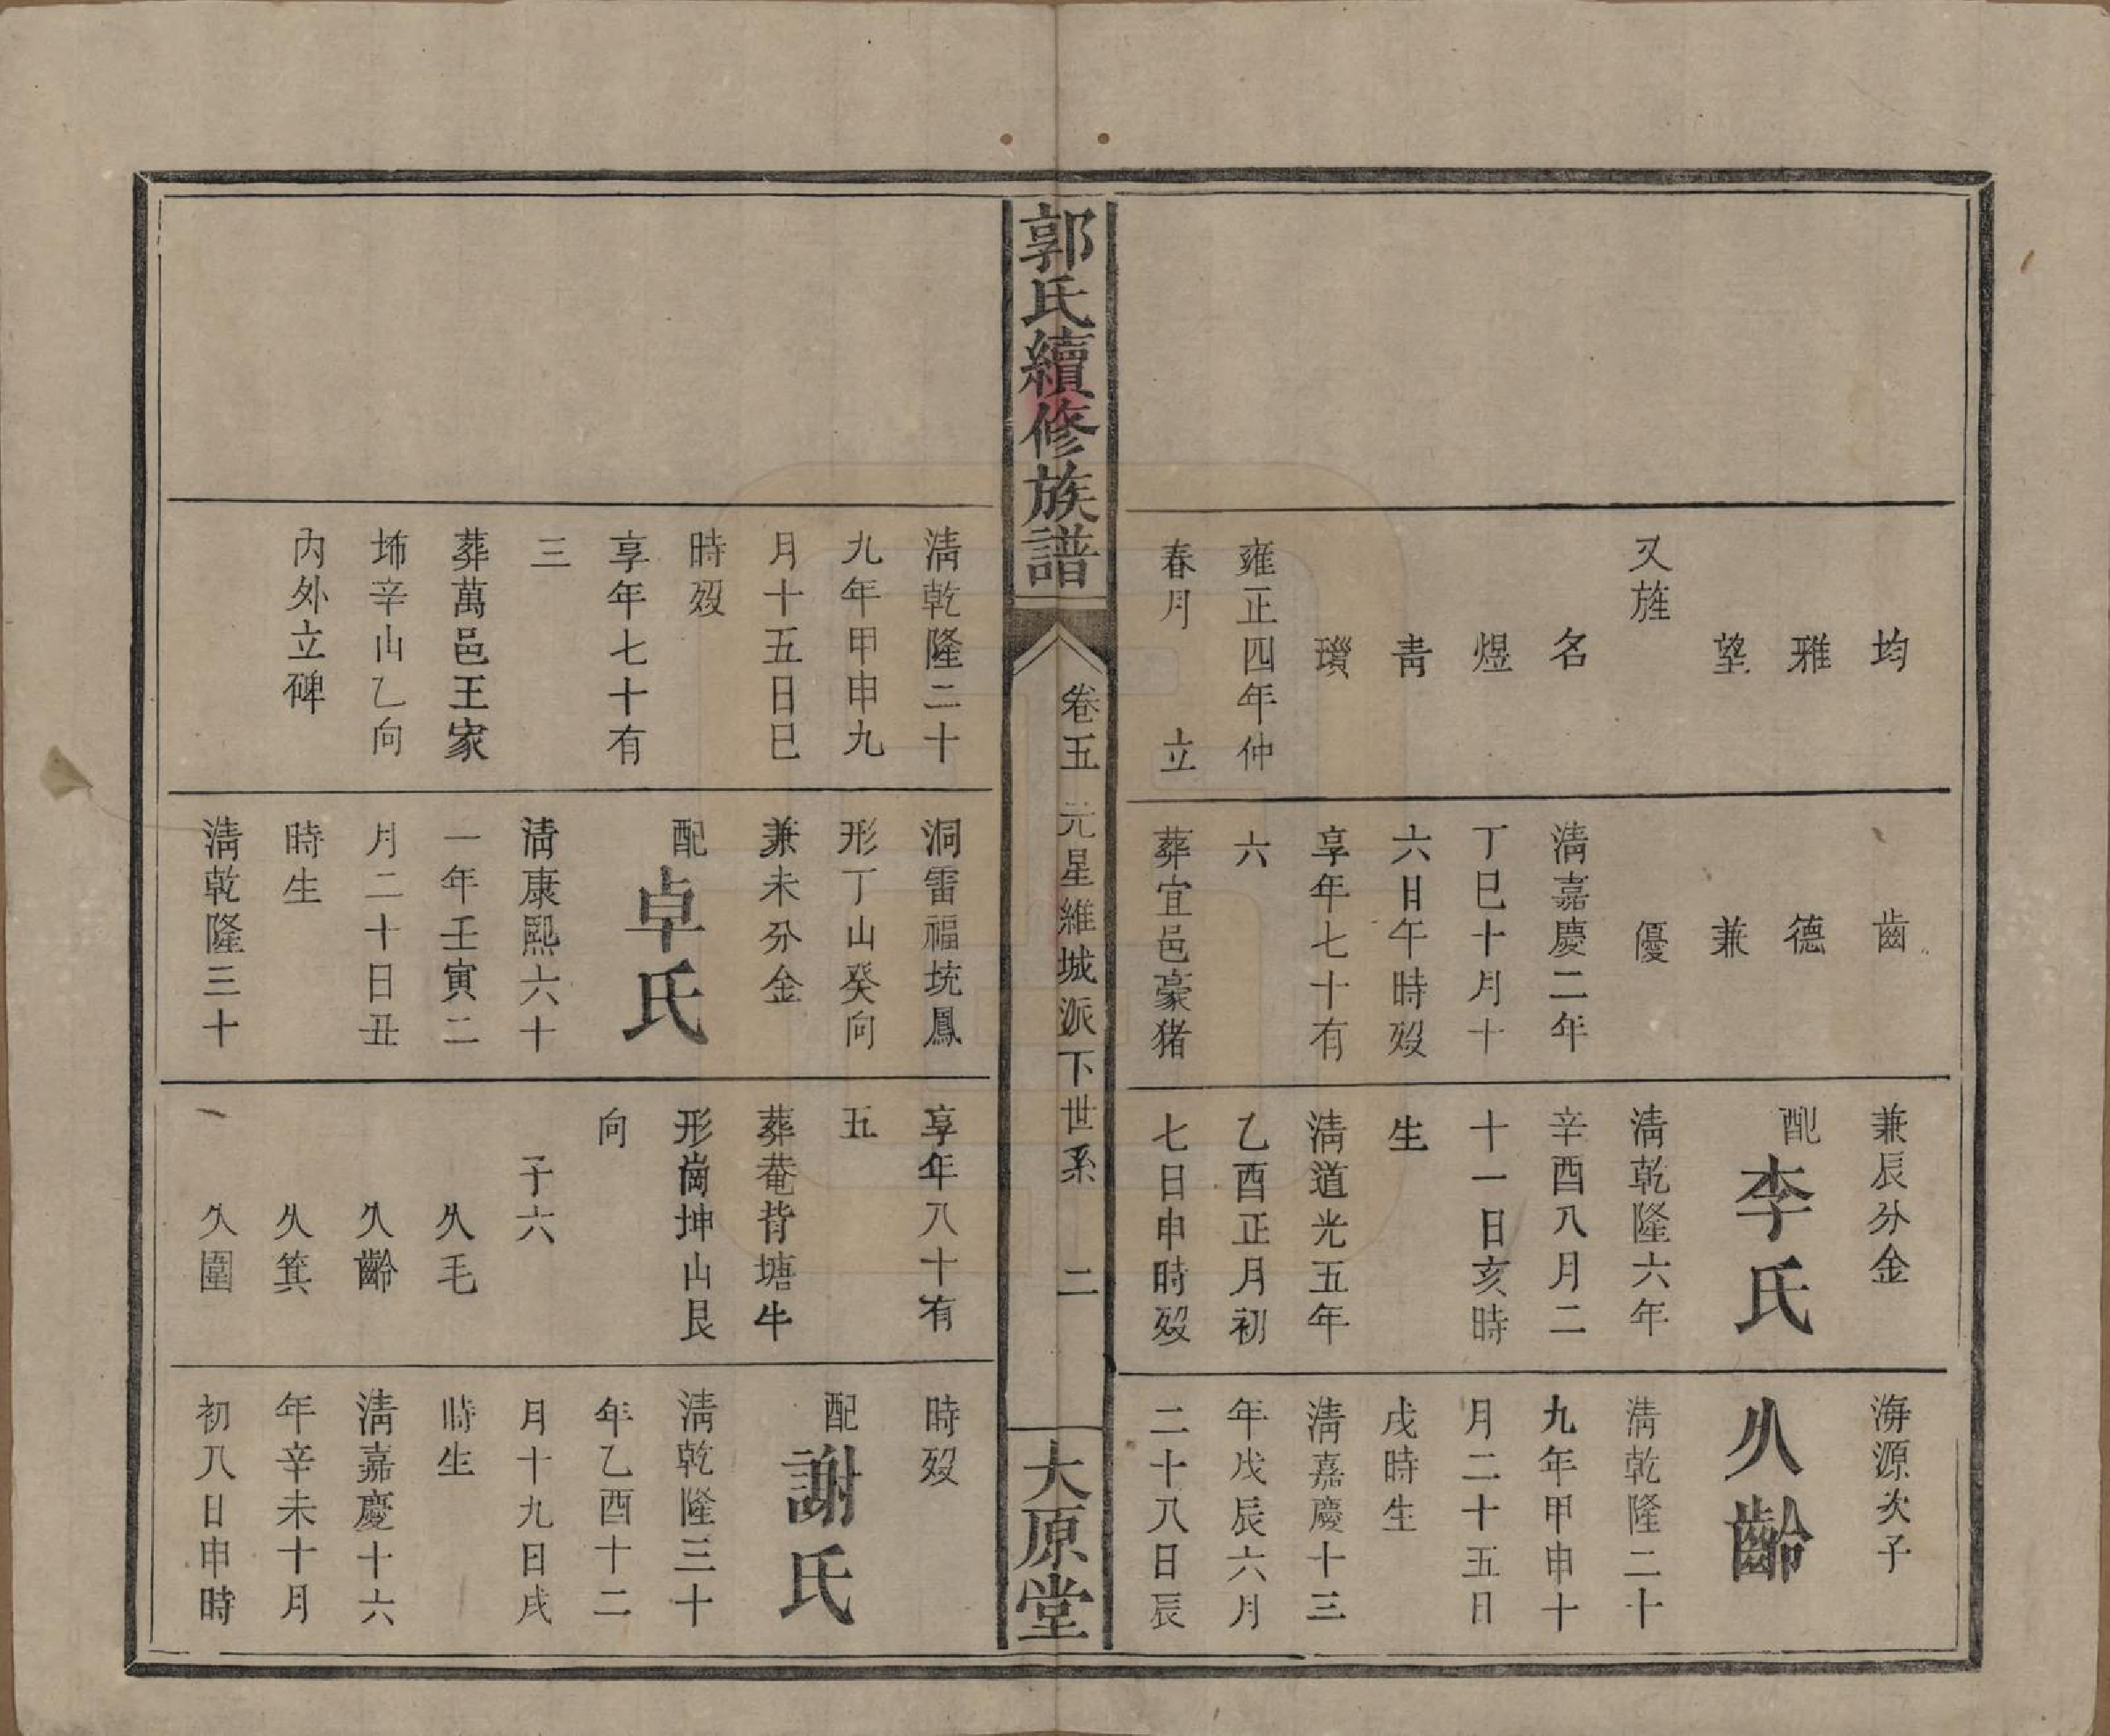 均
雅
望
又旌
名
煜
青
瓚
雍正四年仲
春月　立
齒
德
兼
優
清嘉慶二年
丁巳十月十
六日午時歿
享年七十有
六
葬宜邑豪猪
兼辰分金
配李氏
清乾隆六年
辛酉八月二
十一日亥時
生
清道光五年
乙酉正月初
七日申時歿
海源次子
久齡
清乾隆二十
九年甲申十
月二十五日
戌時生
清嘉慶十三
年戊辰六月
二十八日辰
郭氏續修族譜
卷五　元星維城派下世系　二
大原堂
清乾隆二十
九年甲申九
月十五日巳
時歿
享年七十有
三
葬萬邑王家
㘵辛山乙向
內外立碑
洞雷福坑鳳
形丁山癸向
兼未分金
配卓氏
清康熙六十
一年壬寅二
月二十日丑
時生
清乾隆三十
享年八十有
五
葬菴背塘牛
形崗坤山艮
向
子六
久毛
久齡
久箕
久圍
時歿
配謝氏
清乾隆三十
年乙酉十二
月十九日戌
時生
清嘉慶十六
年辛未十月
初八日申時